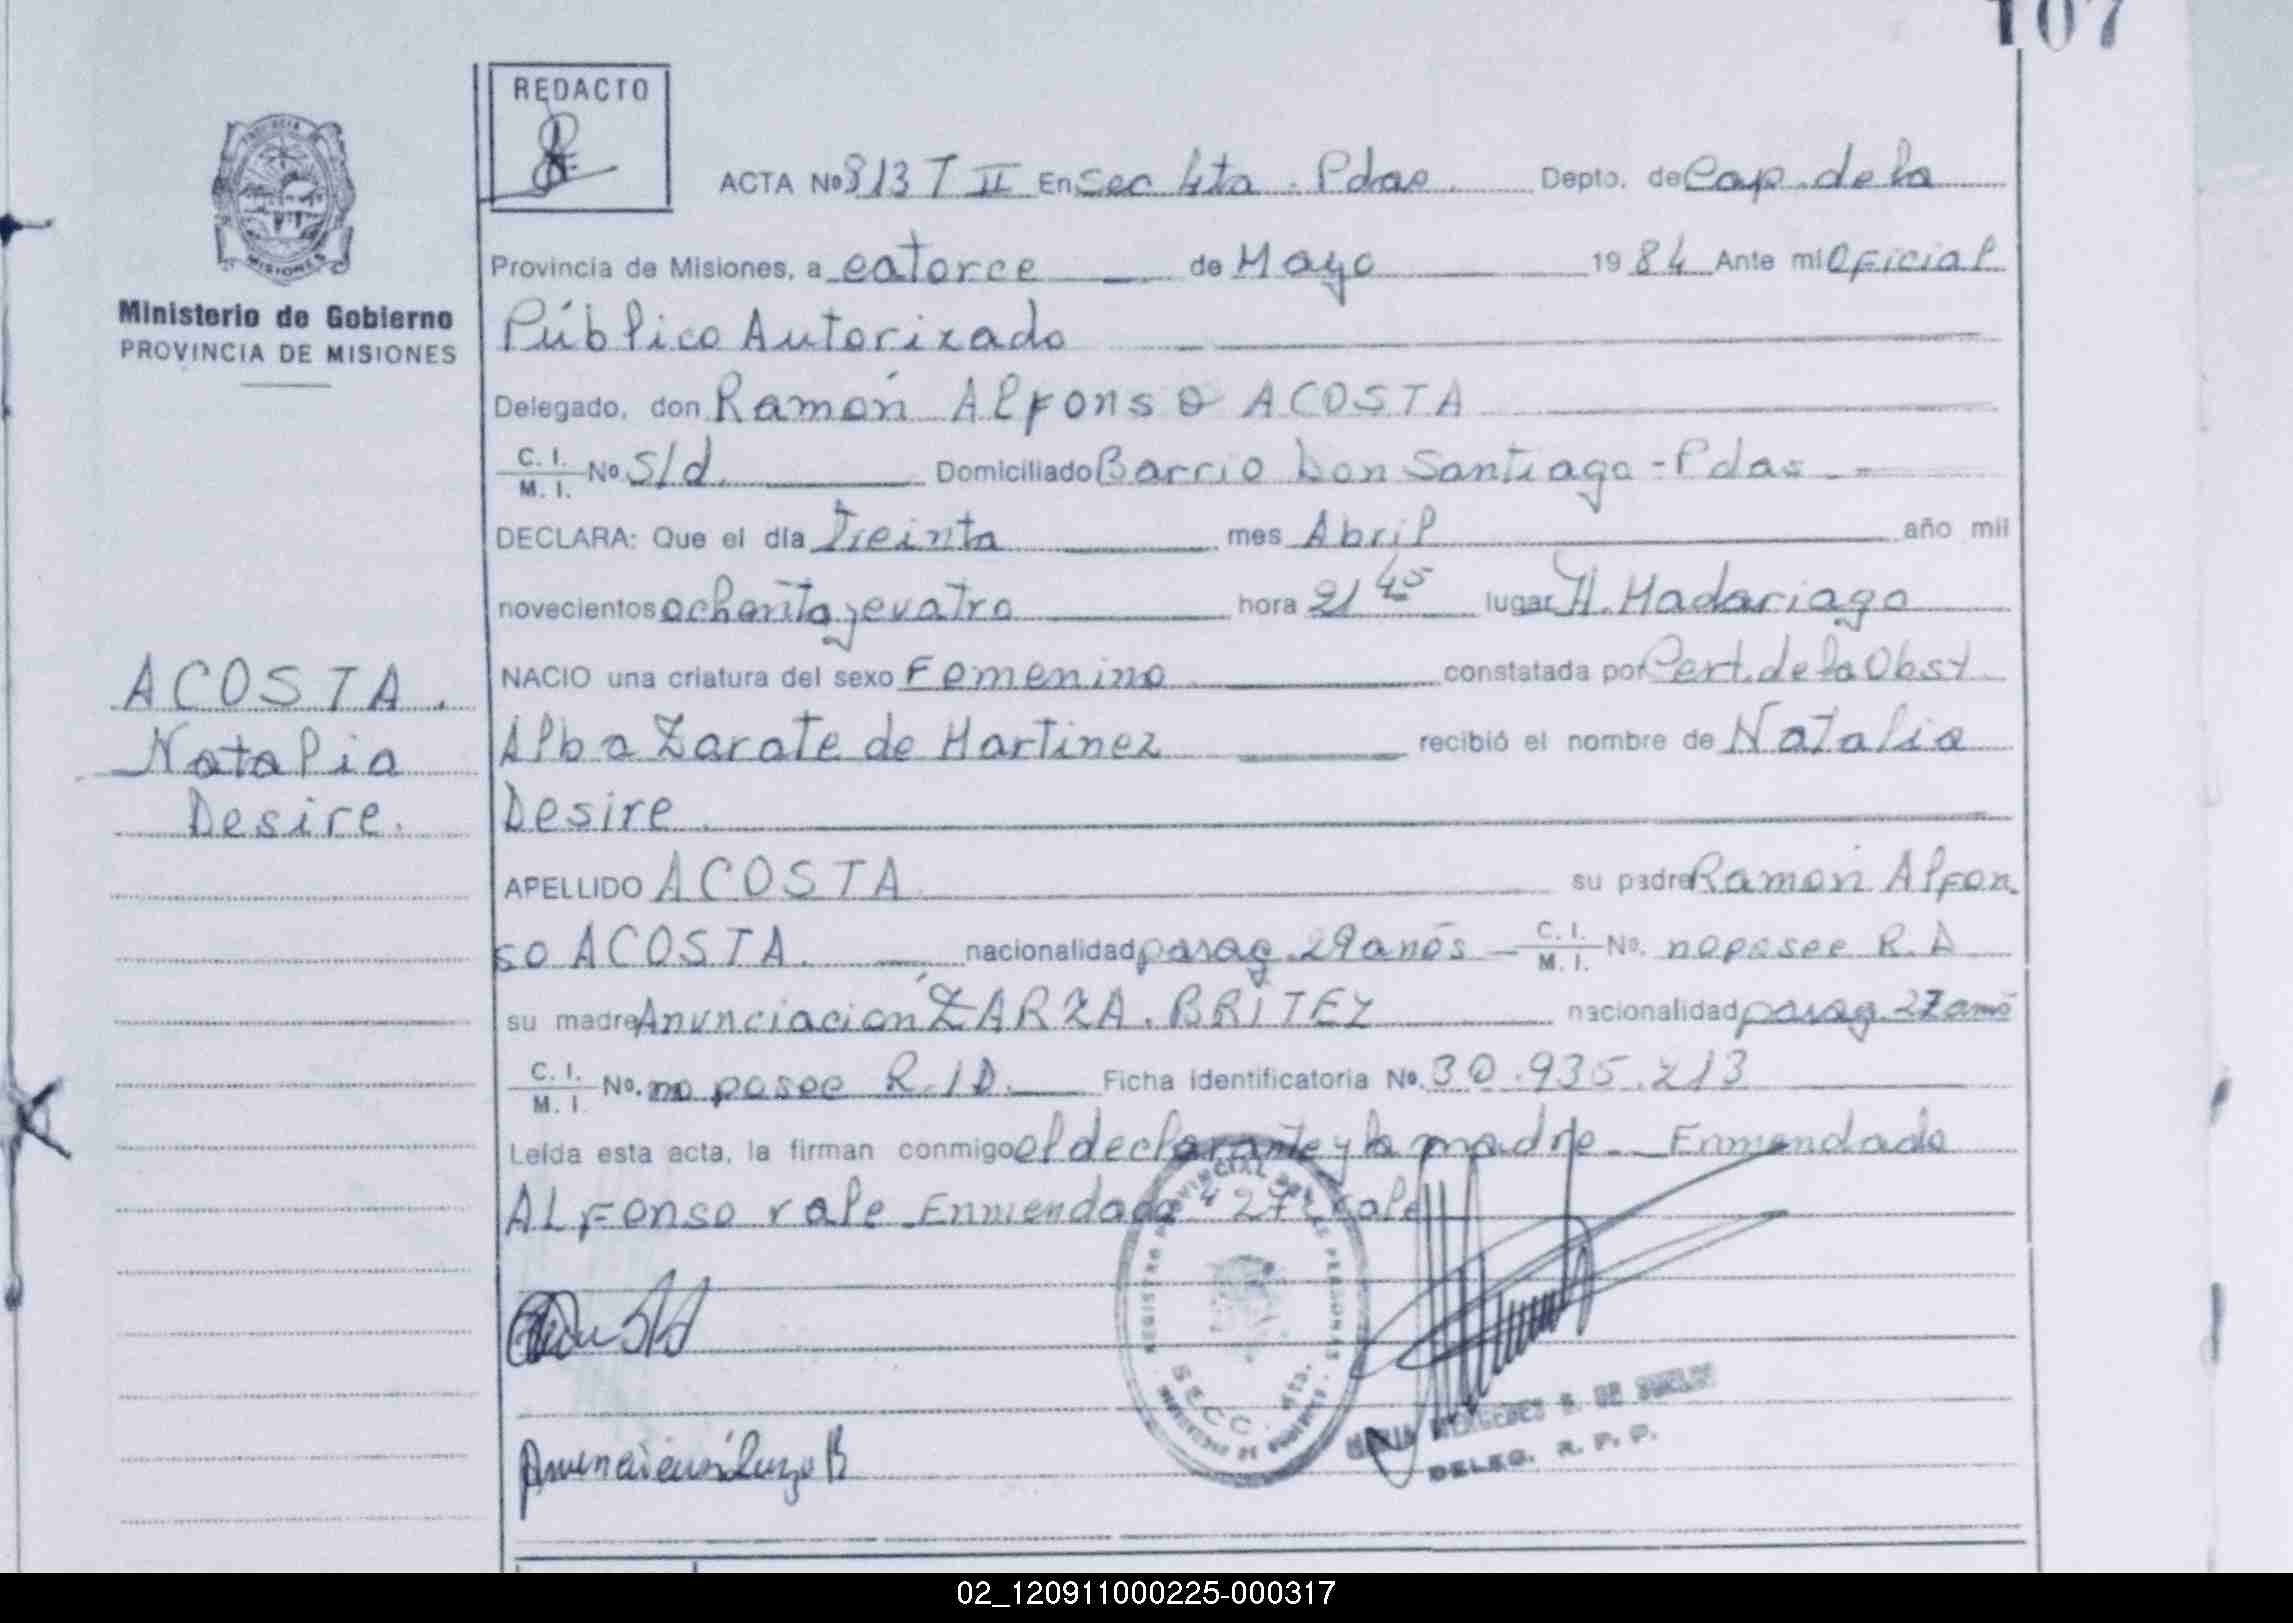 107
REDACTO
ACTA No 813 T II En Sec 4ta. Pdas. Depto. de Cap. de la
Provincia de Misiones, a catorce de Mayo 1984 Ante mi Oficial
Ministerio de Gobierno
PROVINCIA DE MISIONES
Público Autorizado
Delegado, don Ramón Alfonso ACOSTA
C. I. M. I. No S/d. Domiciliado Barrio Don Santiago - Pdas -
DECLARA: Que el día Treinta mes Abril año mil
novecientos ochenta y cuatro hora 21 45 lugar H. Madariaga
NACIO una criatura del sexo Femenino constatada por Cert. de la Obst.
Alba Zarate de Martinez recibió el nombre de Natalia
Desire.
ACOSTA.
Natalia
Desire.
APELLIDO ACOSTA su padre Ramón Alfon
so ACOSTA. nacionalidad parag. 29 años - C. I. M. I. No. no posee R. D
su madre Anunciación ZARZA. BRITEZ nacionalidad parag. 27 año
C. I. M. I. No. no posee R. I D. Ficha identificatoria No. 30.935.213
Leída esta acta, la firman conmigo el declarante y la madre - Enmendado
ALFonso vale Enmendado "27" vale
REGISTRO PROVINCIAL DE LAS PERSONAS
SECC. 4ta.
DELEG. R. P. P.
02_120911000225-000317